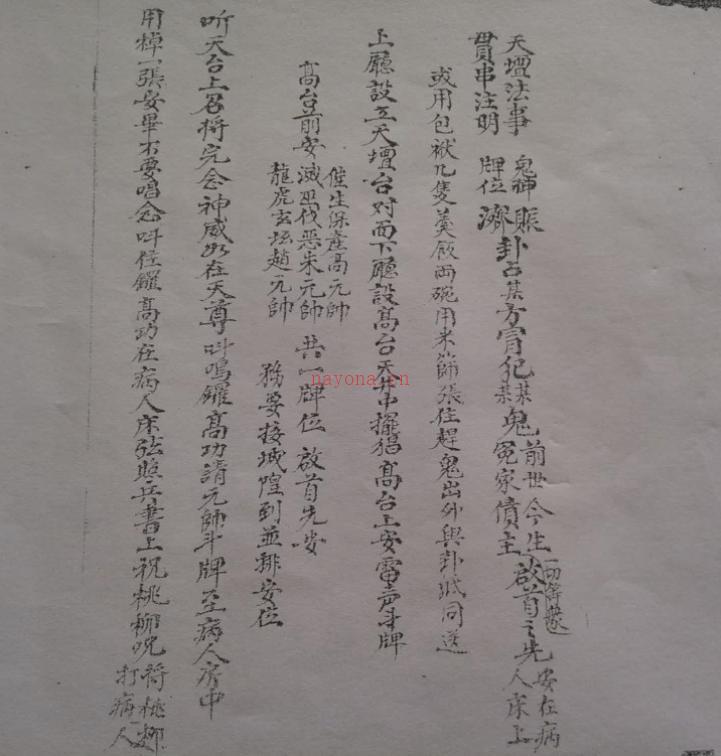 天壇法事 鬼神賬 卦占某方冒犯某某鬼 前世今生冤家債主 一切等眾 啟首之先 安在病人床上
貫串注明 牌位濟
或用包袱几隻羹飯両碗用米篩張住趕鬼出外與卦紙同送
上廳設立天壇台对面下廳設高台天井中擺猖高台上安雷声斗牌
高台前安 催生保產高元帥 滅巫伐惡朱元帥 龍虎玄坛趙元帥 共一牌位 啟首先安 務要接城隍到並排安位
听天台上召将完念神威如在天尊叫鳴鑼高功請元帥斗牌至病人房中
用棹一張安畢不要唱念叫住鑼高功在病人床弦照兵書上祝桃柳咒将桃柳打病人
nayona.cn